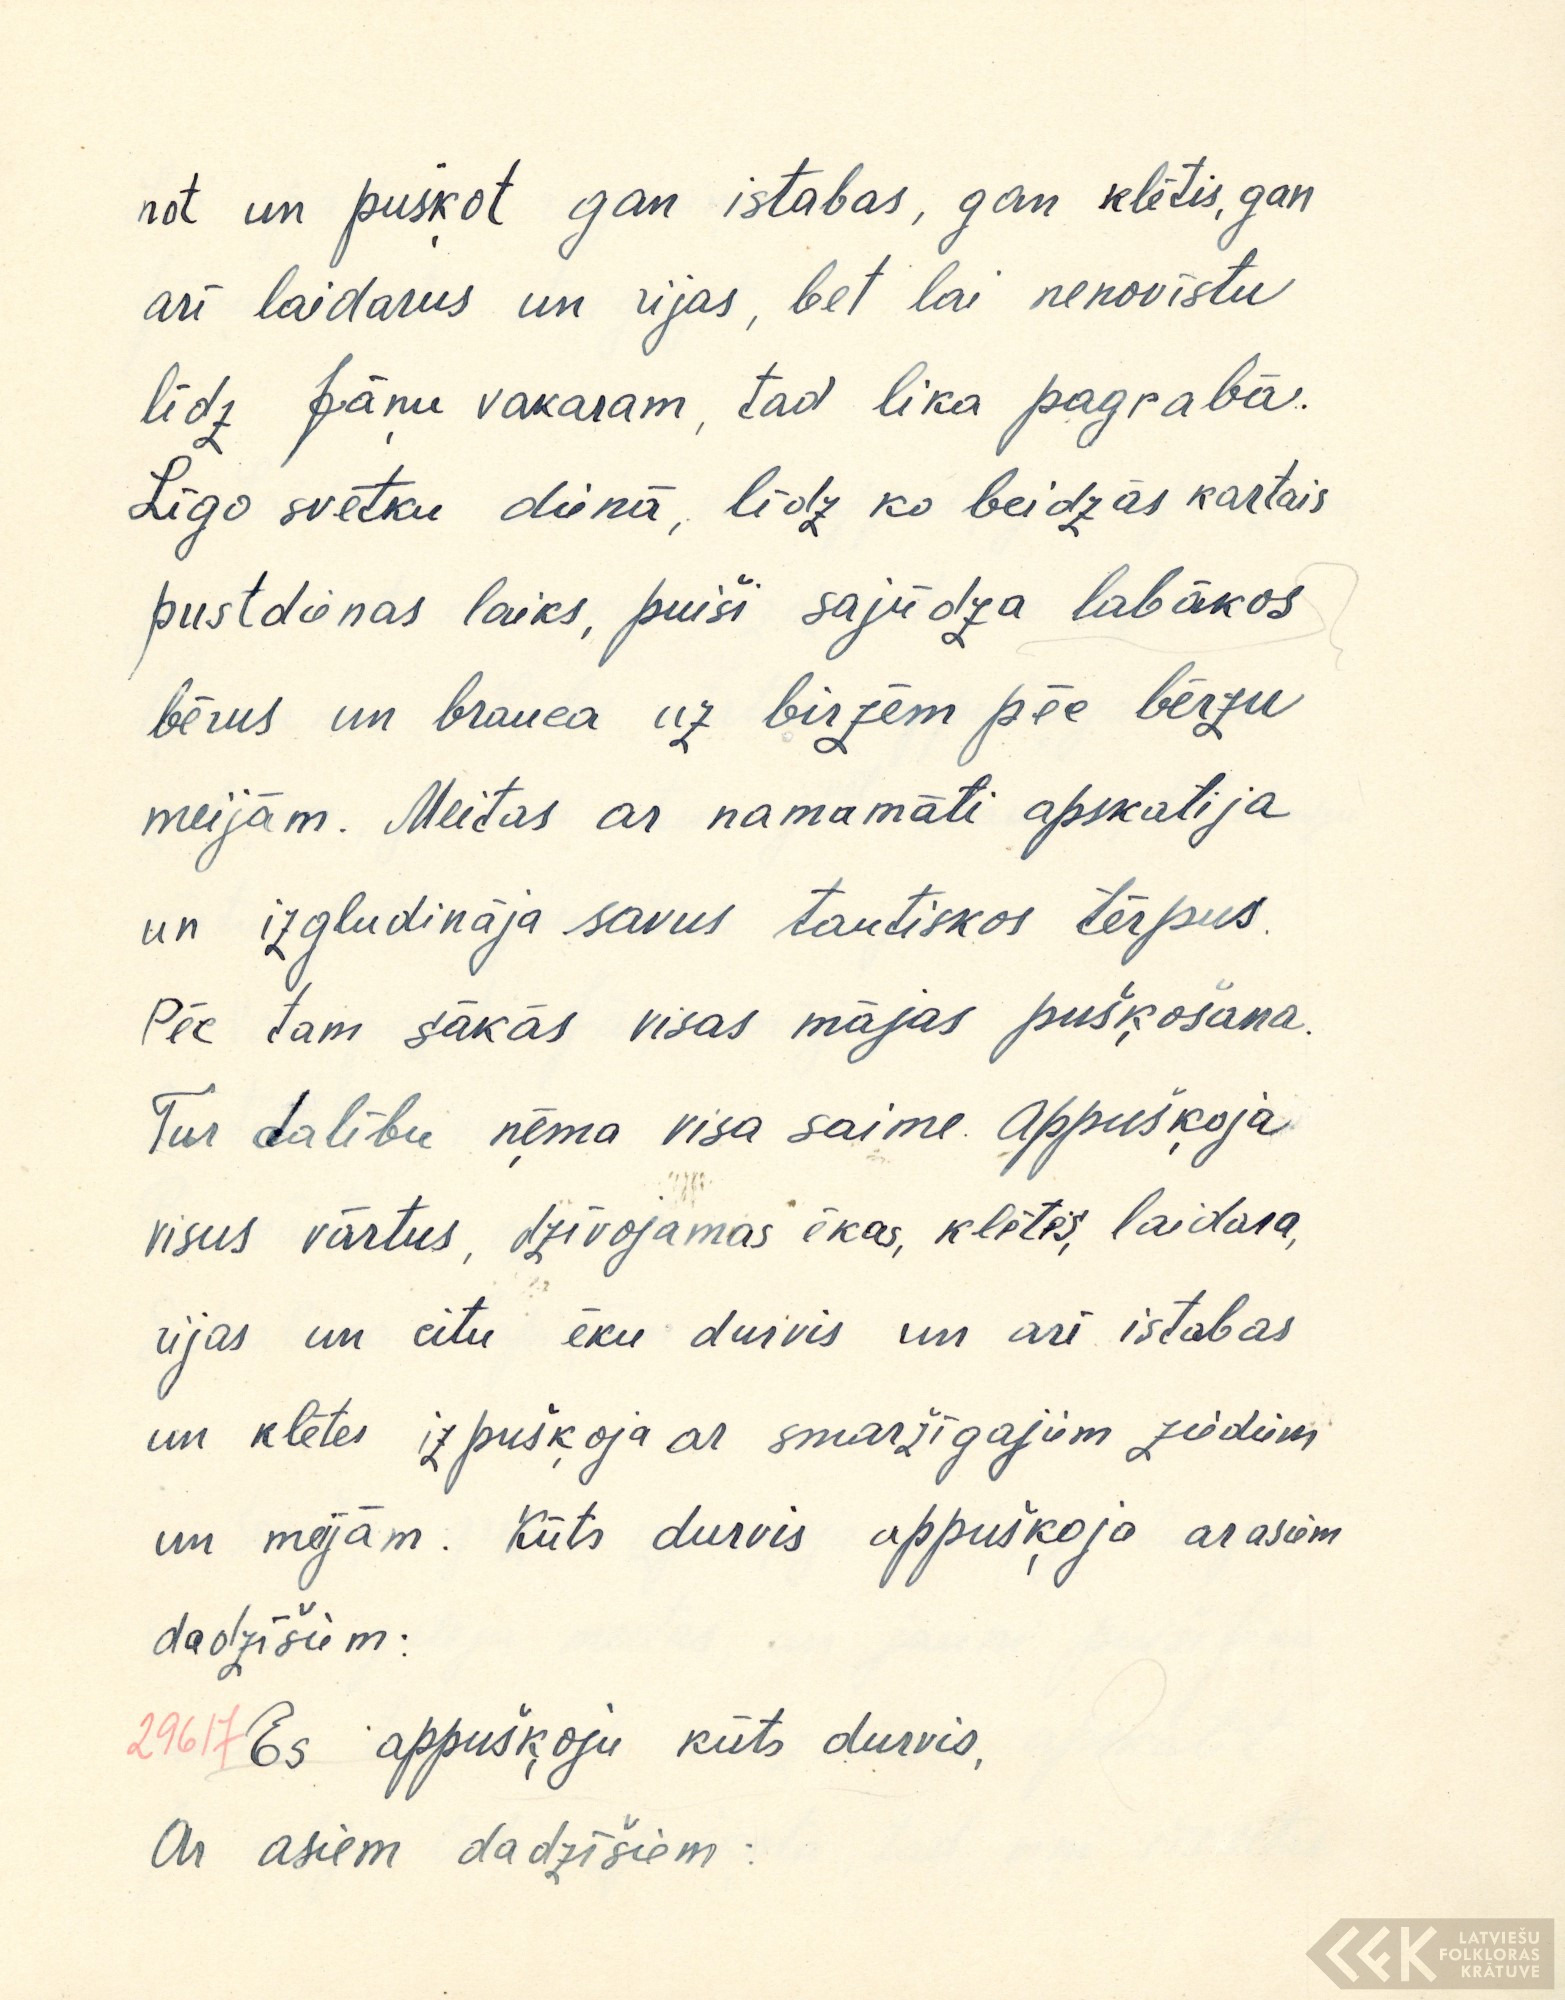 not un pušķot gan istabas, gan klētis, gan
arī laidarus un rijas, bet lai nenovīstu
līdz Jāņu vakaram, tad lika pagrabā.
Līgo svētku dienā, līdz ko beidzās kartais
pustdienas laiks, puiši sajūdza labākos
bērus un brauca uz birzēm pēc bērzu
meijām. Meitas ar namamāti apskatija
un izgludināja savus tautiskos tērpus.
Pēc tam sākās visas mājas pušķošana.
Tur dalību ņēma visa saime. Appušķoja
visus vārtus, dzīvojamas ēkas, klētis, laidara,
rijas un citu ēku durvis un arī istabas
un klētes izpušķoja ar smaržīgajiem ziediem
un meijām. Kūts durvis appušķoja ar asiem
dadzīšiem:
29617 Es appušķoju kūts durvis,
Ar asiem dadzīšiem:
LATVIEŠU
FOLKLORAS
KRĀTUVE